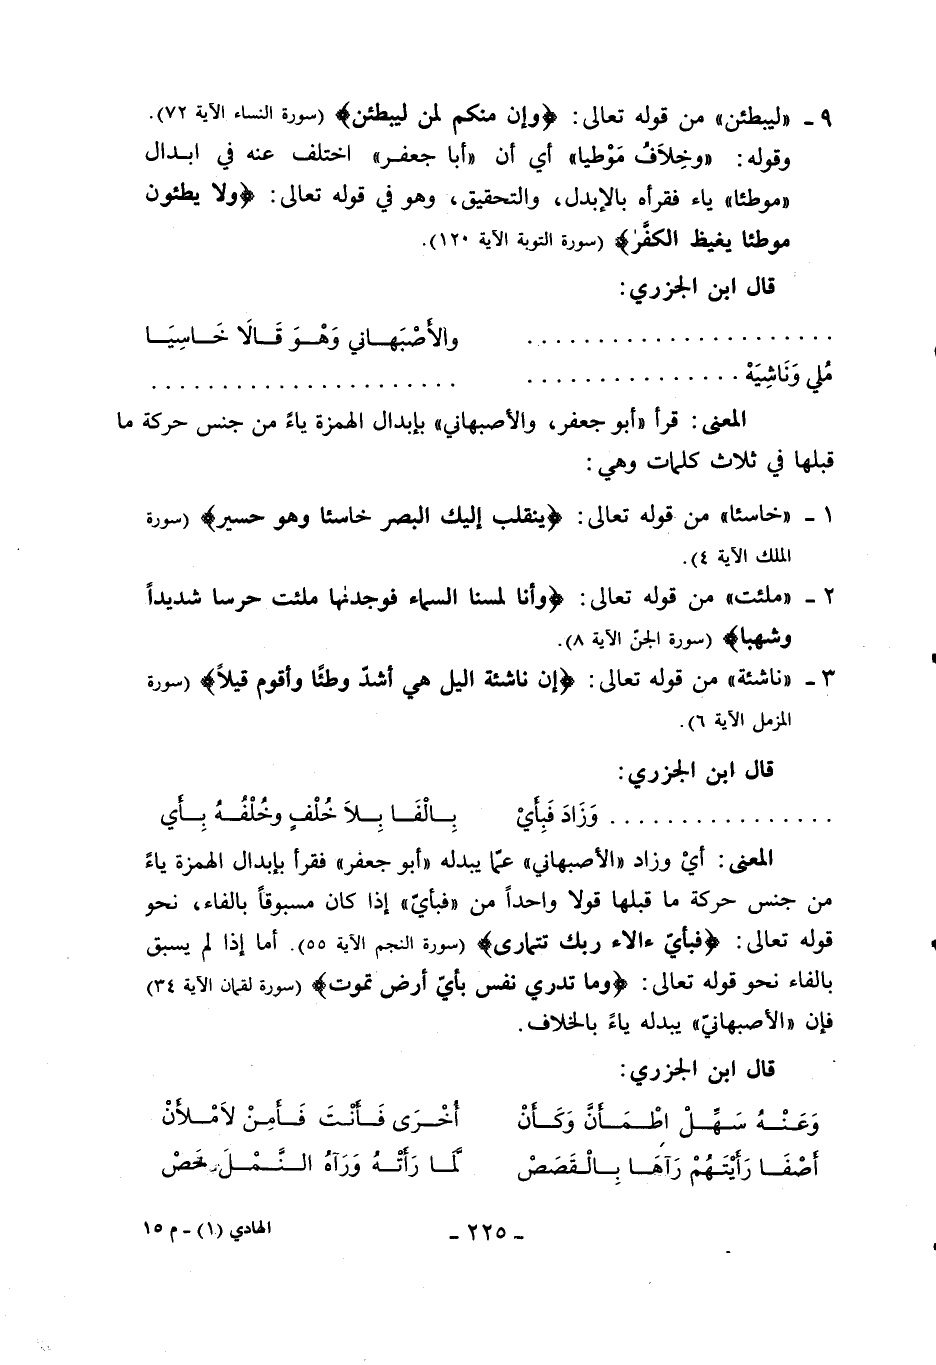 ٩ ـ «ليبطئن» من قوله تعالى: ﴿وإن منكم لمن ليبطئن﴾ (سورة النساء الآية ٧٢).
وقوله: «وخِلاَفُ مَوْطيا» أي أن «أبا جعفر» اختلف عنه في ابدال
«موطئا» ياء فقرأه بالإبدل، والتحقيق، وهو في قوله تعالى: ﴿ولا يطئون
موطئا يغيظ الكفَّرٰ﴾ (سورة التوبة الآية ١٢٠).
قال ابن الجزري:
. . . . . . . . . . . . . . . . . . . . . . والأَصْبَهـاني وَهْـوَ قَـالَا خَـاسِيَـا
مُلي وَنَاشِيَهْ . . . . . . . . . . . . . . . . . . . . . . . . . . . . . . . . . . . . . .
المعنى: قرأ «أبو جعفر، والأصبهاني» بإبدال الهمزة ياءً من جنس حركة ما
قبلها في ثلاث كلمات وهي:
١ ـ «خاسئا» من قوله تعالى: ﴿ينقلب إليك البصر خاسئا وهو حسير﴾ (سورة
الملك الآية ٤).
٢ ـ «ملئت» من قوله تعالى: ﴿وأنا لمسنا السماء فوجدنٰها ملئت حرسا شديداً
وشهبا﴾ (سورة الجنّ الآية ٨).
٣ ـ «ناشئة» من قوله تعالى: ﴿إن ناشئة اليل هي أشدّ وطئًا وأقوم قيلاً﴾ (سورة
المزمل الآية ٦).
قال ابن الجزري:
. . . . . . . . . . . . . . . . وَزَادَ فَبِأَيْ بِـالْفَـا بِـلاَ خُلْفٍ وخُلْفُـهُ بِـأَي
المعنى: أيْ وزاد «الأصبهاني» عمّا يبدله «أبو جعفر» فقرأ بإبدال الهمزة ياءً
من جنس حركة ما قبلها قولا واحداً من «فبأيّ» إذا كان مسبوقاً بالفاء، نحو
قوله تعالى: ﴿فبأيّ ءالاء ربك تتمارى﴾ (سورة النجم الآية ٥٥). أما إذا لم يسبق
بالفاء نحو قوله تعالى: ﴿وما تدري نفس بأيّ أرض تموت﴾ (سورة لقمان الآية ٣٤)
فإن «الأصبهانيّ» يبدله ياءً بالخلاف.
قال ابن الجزري:
وَعَنْـهُ سَهِّـلْ اطْمَـأَنَّ وَكَـأَنْ أُخْـرَى فَـأَنْتَ فَـأَمِنْ لأَمْـلأَنْ
أَصْفَـا رَأَيْتَهُمْ رَآهَـا بِـالْقَصَصْ لَّـا رَأَتْـهُ وَرَآهُ النَّـمْـلَ خَصْ
الهادي (١) ـ م ١٥
ـ ٢٢٥ ـ